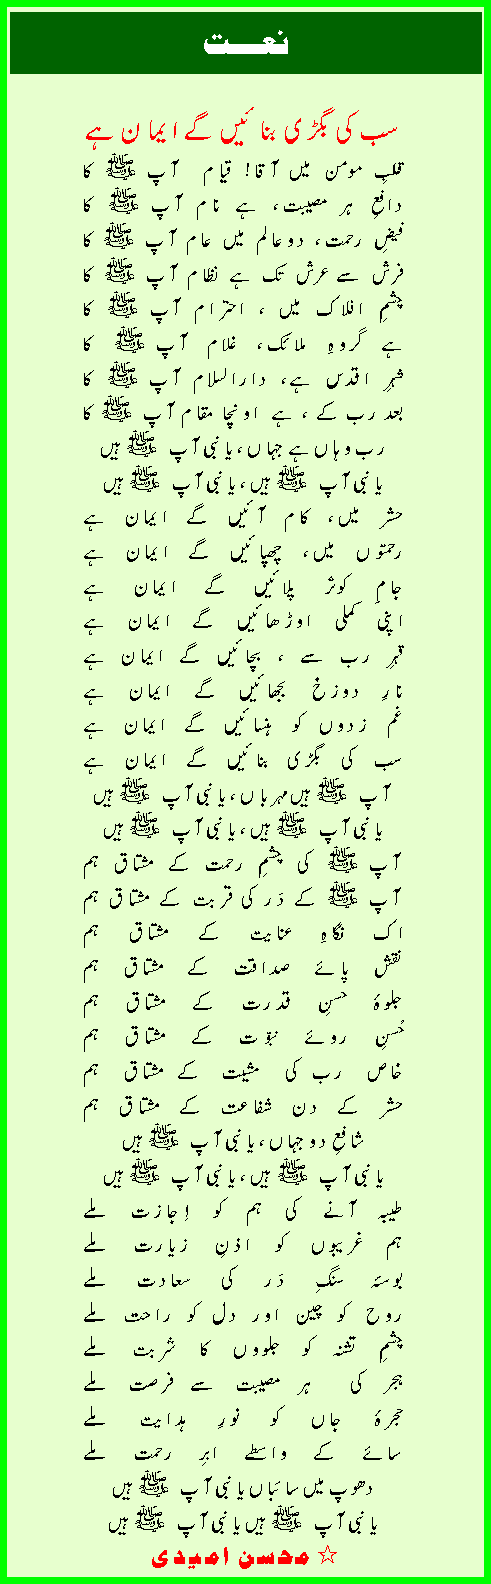 نعت
سب کی بگڑی بنائیں گے ایمان ہے
قلبِ مومن میں آقا! قیام آپ ﷺ کا
دافعِ ہر مصیبت، ہے نام آپ ﷺ کا
فیضِ رحمت، دوعالم میں عام آپ ﷺ کا
فرش سے عرش تک ہے نظام آپ ﷺ کا
چشمِ افلاک میں ، احترام آپ ﷺ کا
ہے گروہِ ملائک، غلام آپ ﷺ کا
شہرِ اقدس ہے، دارالسلام آپ ﷺ کا
بعد رب کے ، ہے اونچا مقام آپ ﷺ کا
رب وہاں ہے جہاں، یا نبی آپ ﷺ ہیں
یا نبی آپ ﷺ ہیں، یا نبی آپ ﷺ ہیں
حشر میں، کام آئیں گے ایمان ہے
رحمتوں میں، چھپائیں گے ایمان ہے
جامِ کوثر پلائیں گے ایمان ہے
اپنی کملی اوڑھائیں گے ایمان ہے
قہرِ رب سے ، بچائیں گے ایمان ہے
نارِ دوزخ بجھائیں گے ایمان ہے
غم زدوں کو ہنسائیں گے ایمان ہے
سب کی بگڑی بنائیں گے ایمان ہے
آپ ﷺ ہیں مہرباں، یا نبی آپ ﷺ ہیں
یا نبی آپ ﷺ ہیں، یا نبی آپ ﷺ ہیں
آپ ﷺ کی چشمِ رحمت کے مشتاق ہم
آپ ﷺ کے دَر کی قربت کے مشتاق ہم
اک نگاہِ عنایت کے مشتاق ہم
نقش پائے صداقت کے مشتاق ہم
جلوۂ حسنِ قدرت کے مشتاق ہم
حُسنِ روئے نبوّت کے مشتاق ہم
خاص رب کی مشیت کے مشتاق ہم
حشر کے دن شفاعت کے مشتاق ہم
شافعِ دو جہاں، یا نبی آپ ﷺ ہیں
یا نبی آپ ﷺ ہیں، یا نبی آپ ﷺ ہیں
طیبہ آنے کی ہم کو اِجازت ملے
ہم غریبوں کو اذنِ زیارت ملے
بوسۂ سنگِ دَر کی سعادت ملے
روح کو چین اور دل کو راحت ملے
چشمِ تشنہ کو جلووں کا شربت ملے
ہجر کی ہر مصیبت سے فرصت ملے
حجرۂ جاں کو نورِ ہدایت ملے
سائے کے واسطے ابرِ رحمت ملے
دھوپ میں سائباں یا نبی آپ ﷺ ہیں
یا نبی آپ ﷺ ہیں یا نبی آپ ﷺ ہیں
☆ محسن امیدی